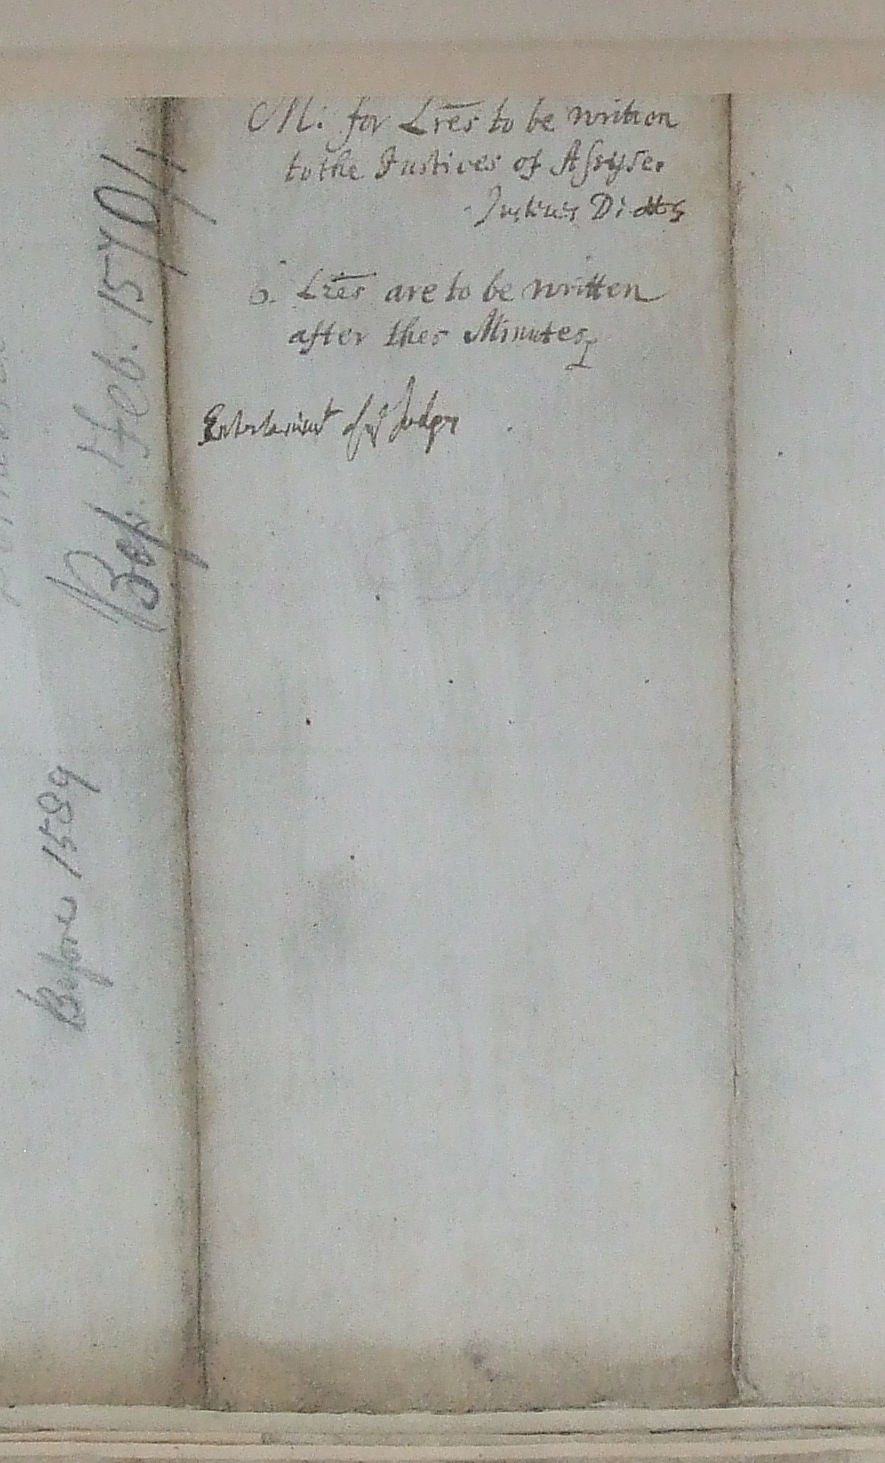 M: for Lr̃es to be written
to the Justices of Assyse.
Justices Dietts
6. Lr̃es are to be written
after thes Minutes
Entertainmt of ye Judges
Bef. Feb. 157
Before 1589